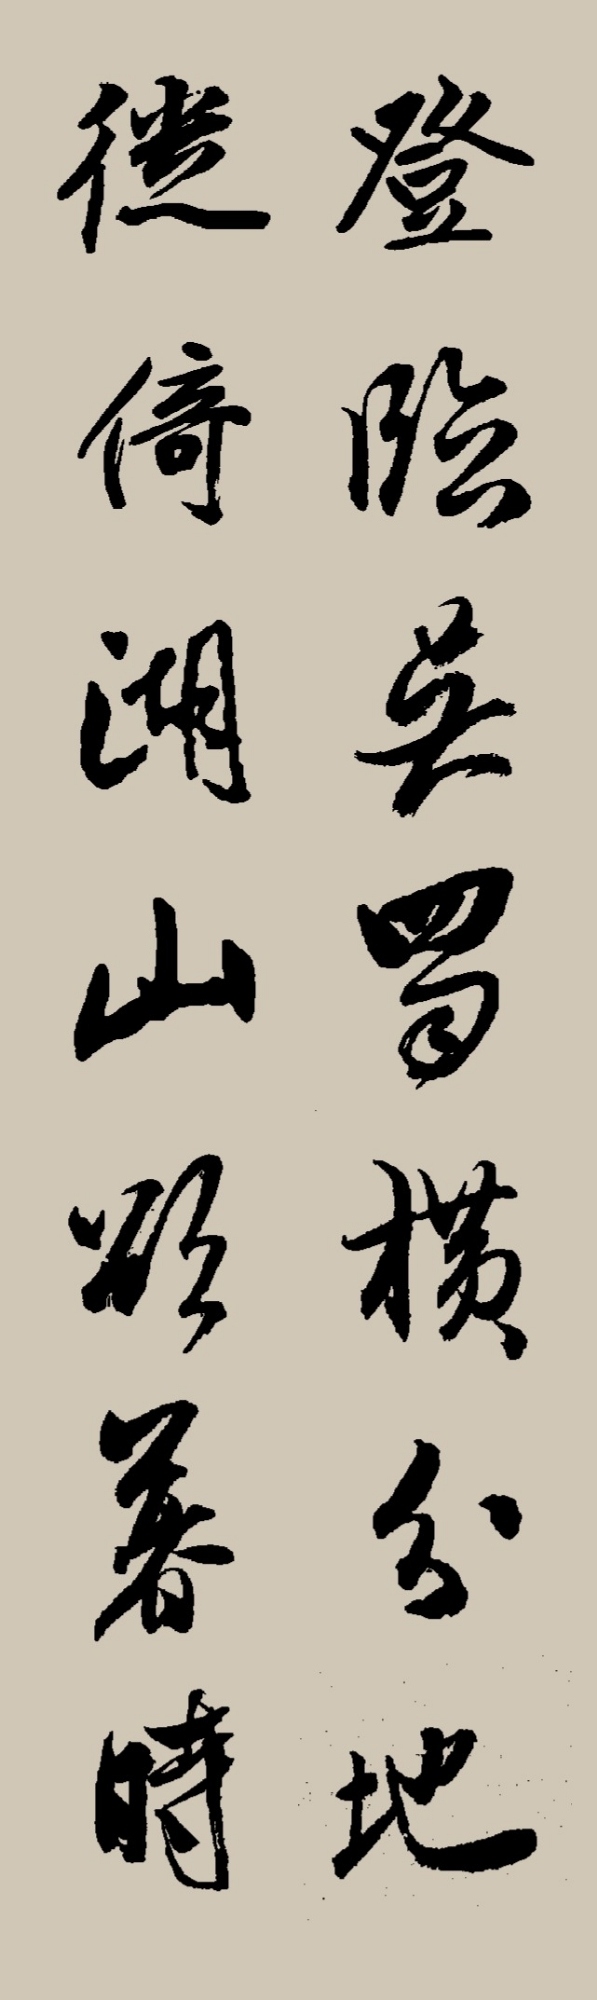 登臨吴蜀横分地
徙倚湖山欲暮時